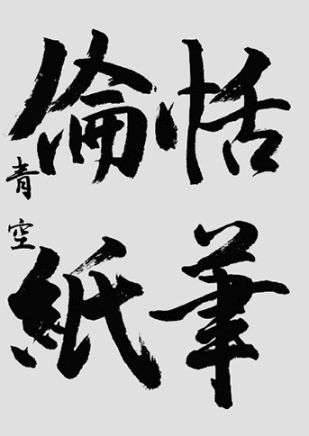 恬筆
倫紙
青空